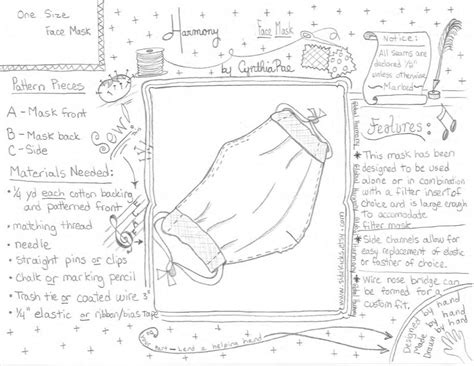 One Size
Face Mask
Harmony
Face Mask
by CynthiaPae
Notice:
All seams are
declared 1/2"
unless otherwise
Marked
Pattern Pieces
A - Mask front
B - Mask back
C - Side
Sew!
Materials Needed:
• 1/4 yd each cotton backing
and patterned front
• matching thread
• needle
• straight pins or clips
• chalk or marking pencil
• Trash tie or coated wire 3"
• 1/4" elastic or ribbon/bias tape
Features:
* This mask has been
designed to be used
alone or in combination
with a filter insert of
choice and is large enough
to accomodate
filter mask
* Side channels allow for
easy replacement of elastic
or fastner of choice.
* Wire nose bridge can
be formed for a
custom fit.
Lend a helping hand
Designed by hand
Made by hand
Drawn by hand